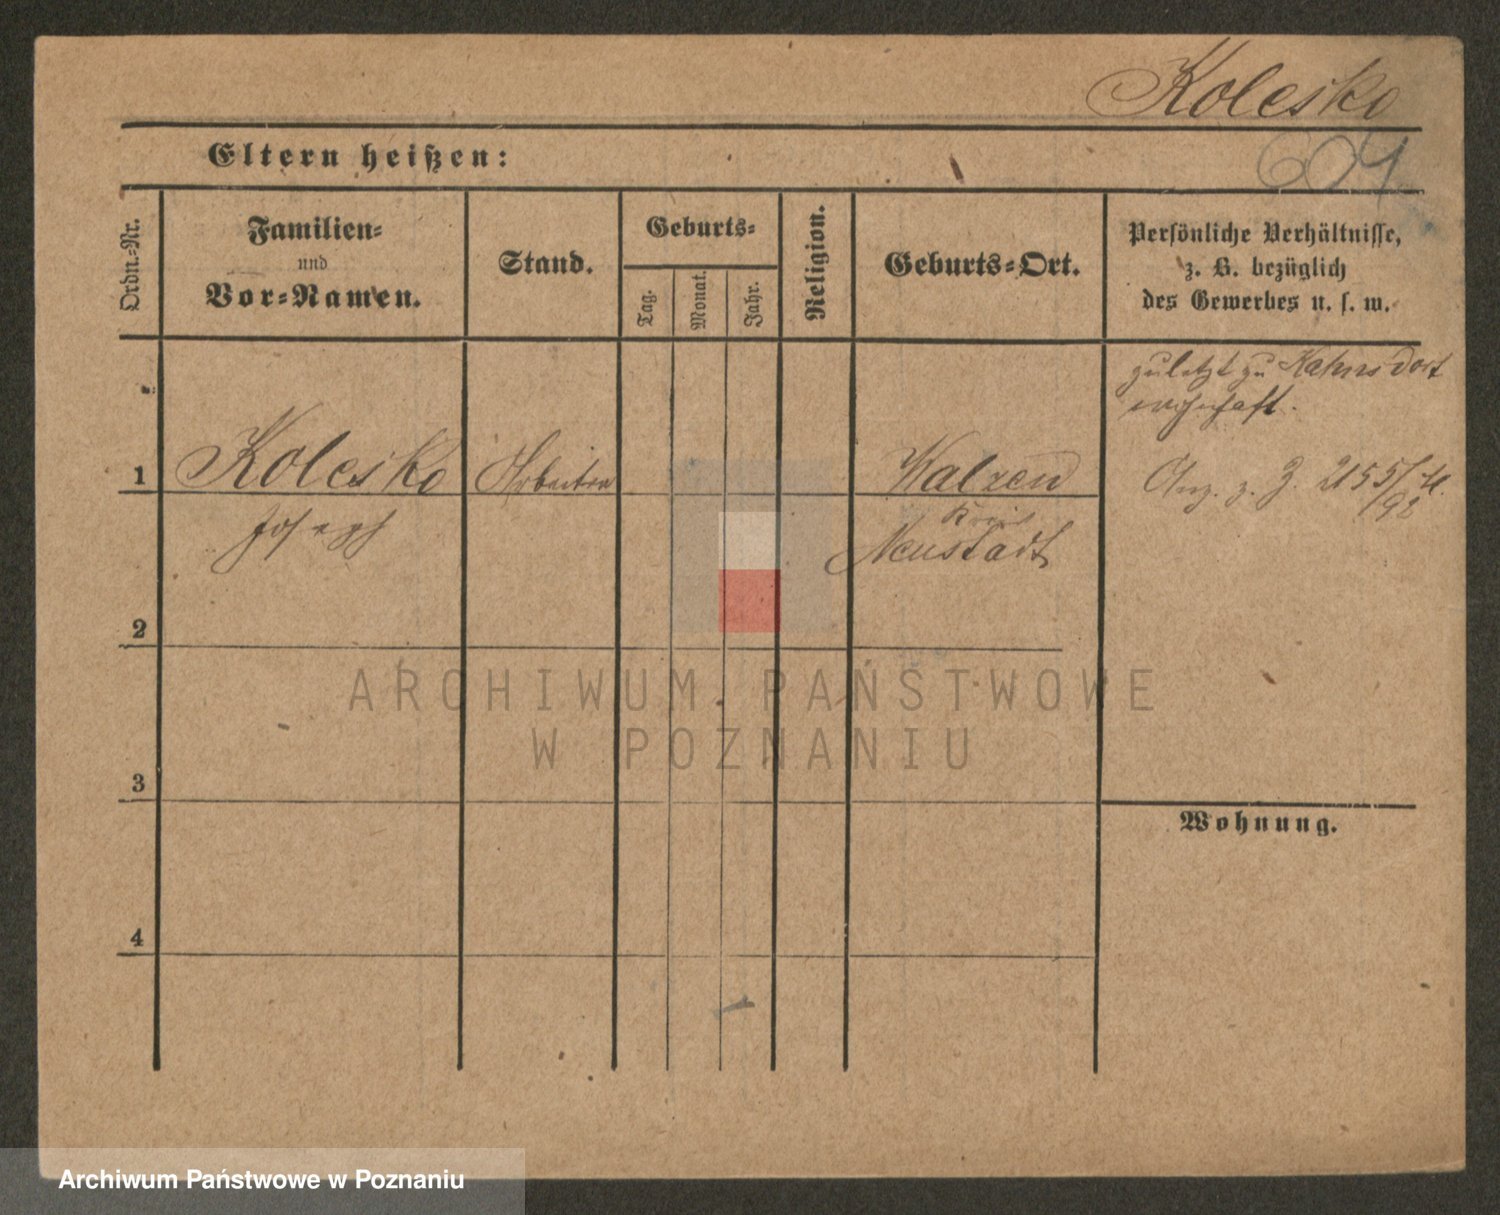 Kolesko
604
Eltern heißen:
Ordn.=Nr.
Familien=
und
Vor=Namen.
Stand.
Geburts=
Tag.
Monat.
Jahr.
Religion.
Geburts=Ort.
Persönliche Verhältnisse,
z. B. bezüglich
des Gewerbes u. s. w.
zuletzt zu Kahnsdorf
wohnhaft.
1
Kolesko
Arbeiter
Walzen
z. J. 2155/
92
Joseph
Kreis
Neustadt
2
ARCHIWUM PAŃSTWOWE
W POZNANIU
3
Wohnung.
4
Archiwum Państwowe w Poznaniu